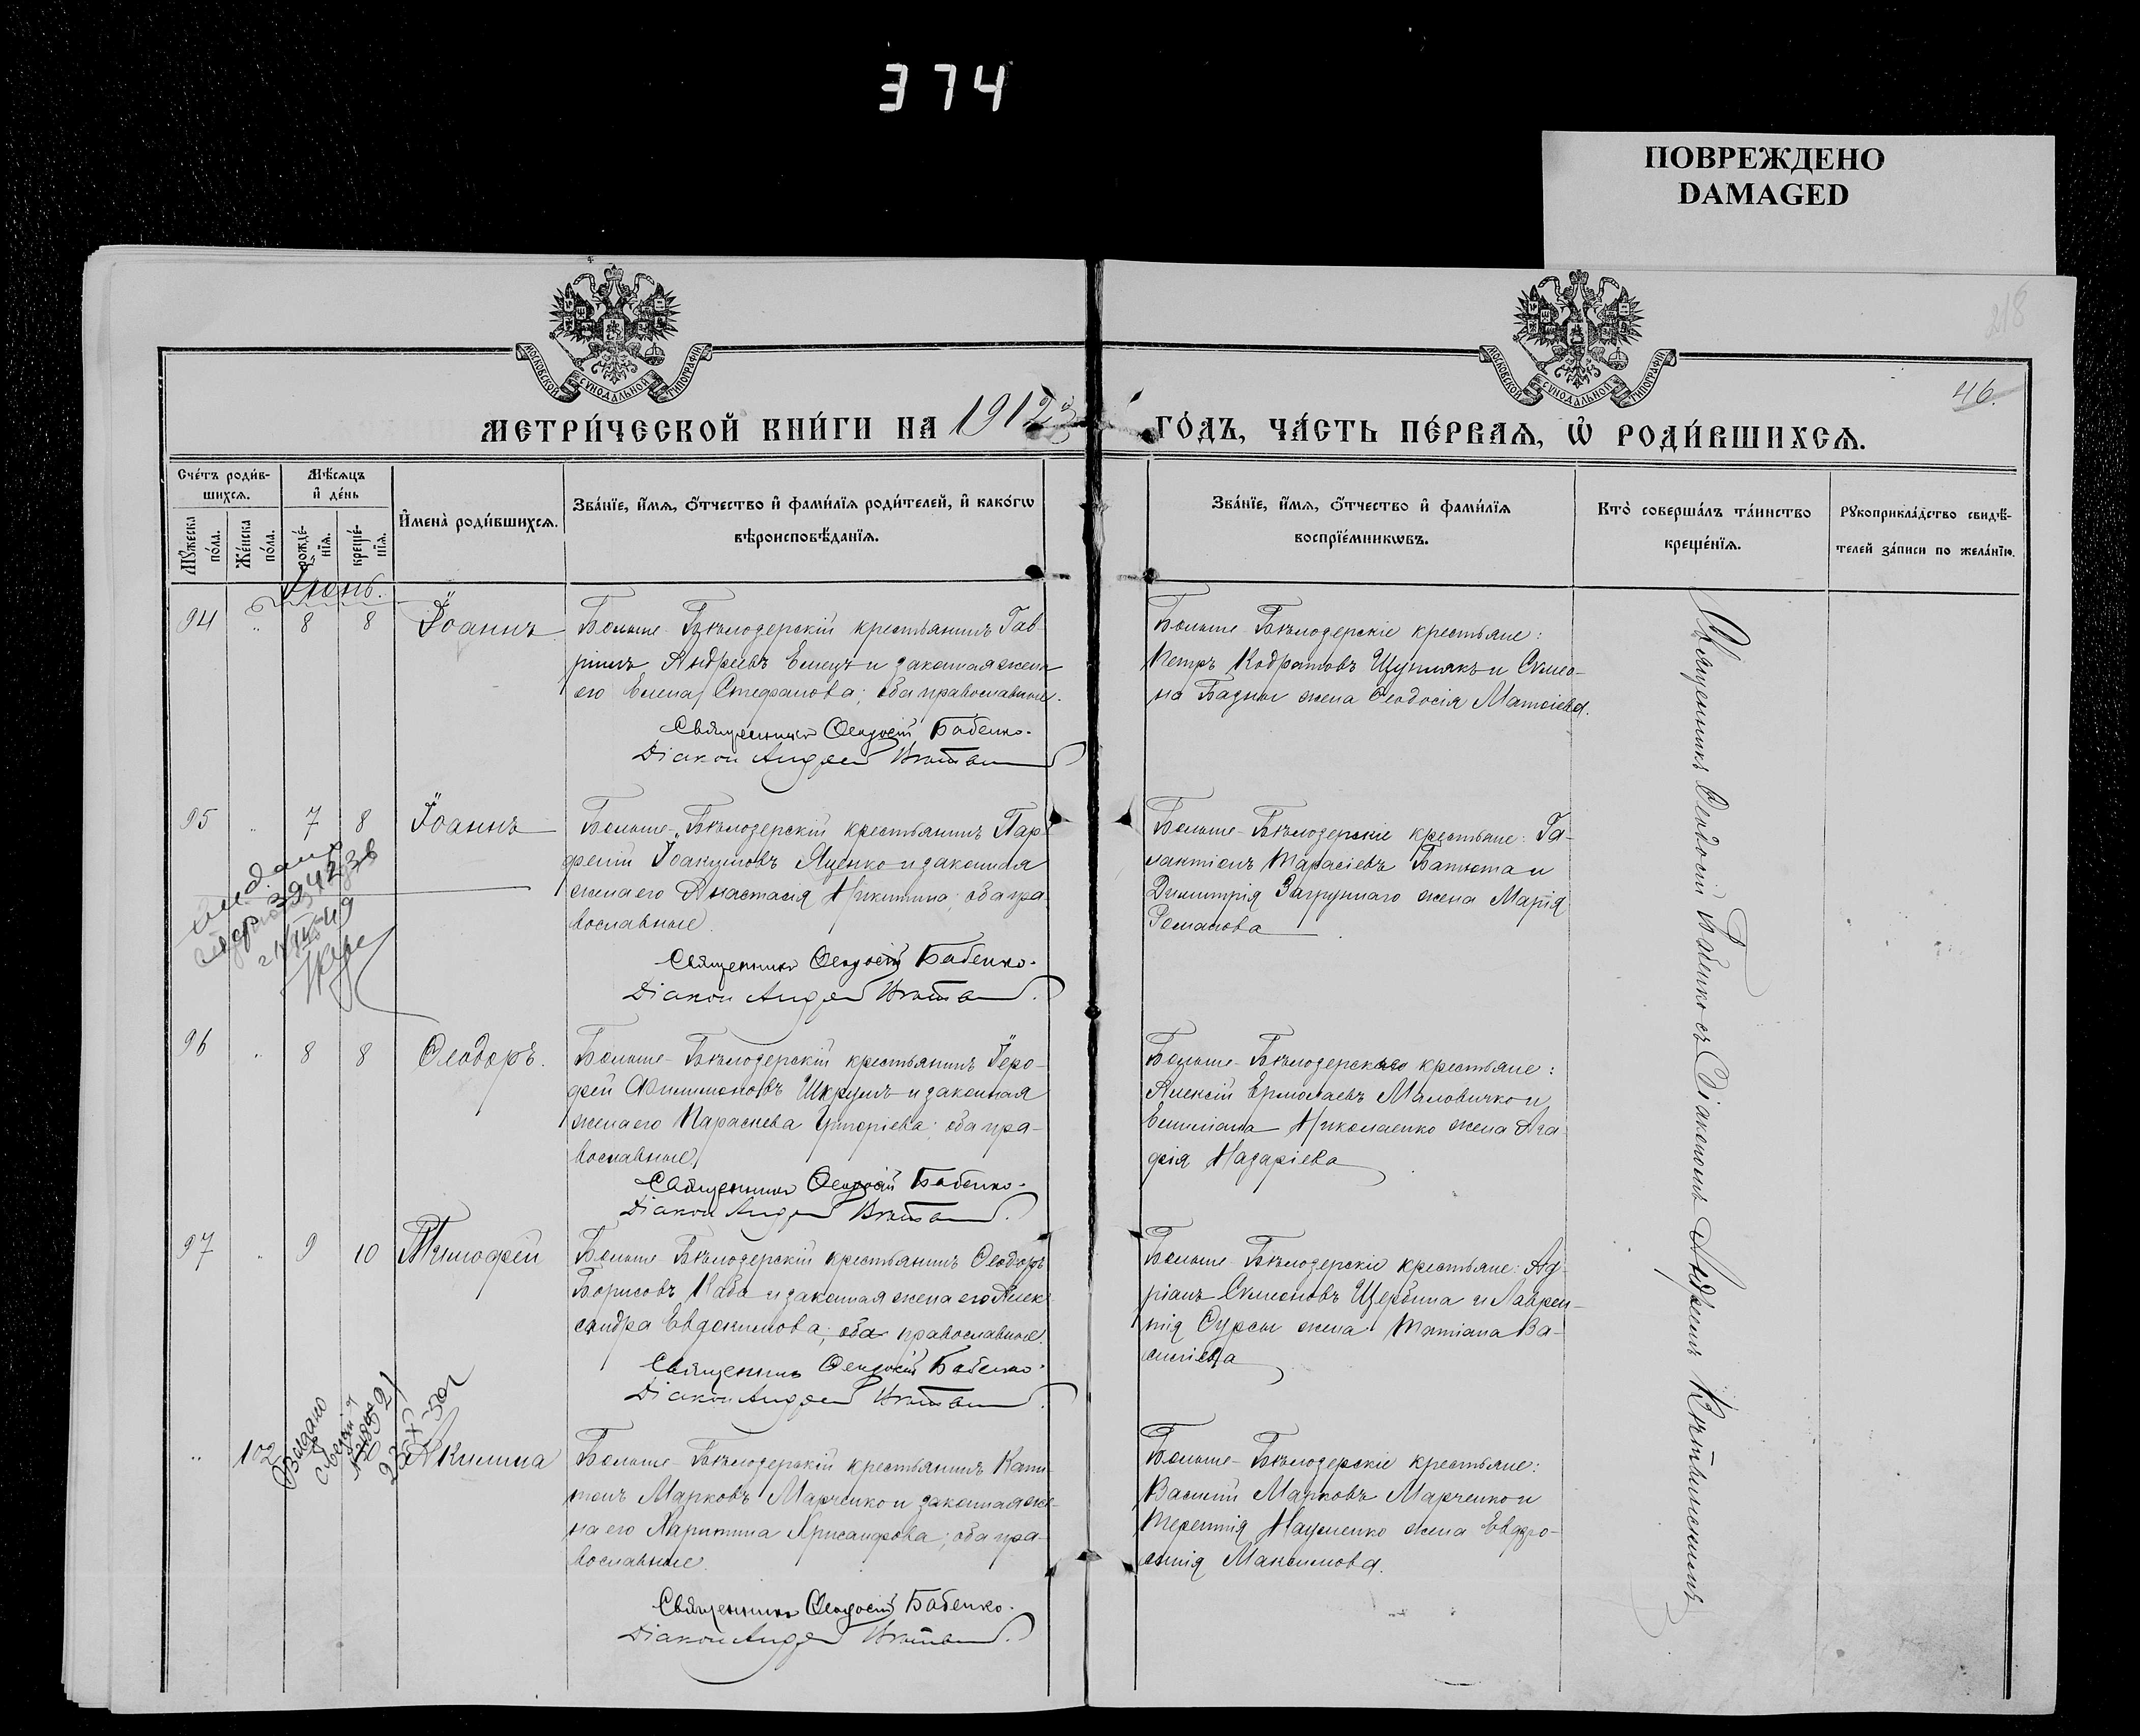 374
ПОВРЕЖДЕНО
DAMAGED
218
46.
МОСКОВСКОЙ СѴНОДАЛЬНОЙ ТИПОГРАФІИ
МОСКОВСКОЙ СѴНОДАЛЬНОЙ ТИПОГРАФІИ
МЕТРИ́ЧЕСКОЙ КНИ́ГИ НА 1912 ГО́ДЪ, ЧА́СТЬ ПЕ́РВАѦ, Ѡ҆ РОДИ́ВШИХСѦ.
Сче́тъ роди́в-
шихсѧ.
Мѣ́сѧцъ
и҆ де́нь
Мꙋ́жеска
по́ла.
Же́нска
по́ла.
рожде́-
нїѧ.
креще́-
нїѧ.
И҆мена̀ роди́вшихсѧ.
Зва́нїе, и҆́мѧ, ѻ҆́тчество и҆ фами́лїѧ роди́телей, и҆ како́гѡ
вѣроисповѣ́данїѧ.
Зва́нїе, и҆́мѧ, ѻ҆́тчество и҆ фами́лїѧ
воспрїе́мникѡвъ.
Кто̀ соверша́лъ та́инство
креще́нїѧ.
Рꙋкоприкла́дство свидѣ́-
телей за́писи по жела́нїю.
Іюнь.
94 " 8 8 Іоаннъ
Больше-Бѣлозерскій крестьянинъ Гав-
ріилъ Андреевъ Емецъ и законная жена
его Елена Стефанова; оба православные.
Священникъ Ѳеодосій Бабенко.
Діаконъ Андрей
Больше-Бѣлозерскіе крестьяне:
Петръ Кодратовъ Щупликъ и Симео-
на Бадны жена Ѳеодосія Матѳіева.
95 " 7 8 Іоаннъ
Больше-Бѣлозерскій крестьянинъ Пар-
феній Іоакимовъ Яценко и законная
жена его Анастасія Никитина; оба пра-
вославные.
Священникъ Ѳеодосій Бабенко.
Діаконъ Андрей
Больше-Бѣлозерскіе крестьяне: Га-
лактіонъ Тарасіевъ Батюта и
Димитрія Загрунаго жена Марія
Романова
96 " 8 8 Ѳеодоръ.
Больше-Бѣлозерскій крестьянинъ Іеро-
фей Филимоновъ Шкрумъ и законная
жена его Параскева Григоріева; оба пра-
вославные
Священникъ Ѳеодосій Бабенко.
Діаконъ Андрей
Больше-Бѣлозерскіе крестьяне:
Алексій Ермолаевъ Маловичко и
Емиліана Николаенко жена Ага-
фія Назаріева
97 " 9 10 Тимофей
Больше-Бѣлозерскій крестьянинъ Ѳеодоръ
Борисовъ Каба и законная жена его Алек-
сандра Евдокимова; оба православные.
Священникъ Ѳеодосій Бабенко.
Діаконъ Андрей
Больше-Бѣлозерскіе крестьяне: Ад-
ріанъ Симеоновъ Щербина и Лаврен-
тія Сурсы жена Татіана Ва-
силіева
" 102 Акилина
Больше-Бѣлозерскій крестьянинъ Капи-
тонъ Марковъ Марченко и законная же-
на его Харитина Хрисанфова; оба пра-
вославные.
Священникъ Ѳеодосій Бабенко.
Діаконъ Андрей
Больше-Бѣлозерскіе крестьяне:
Василій Марковъ Марченко и
Терентія Науменко жена Евдро-
синія Максимова.
Священникъ Ѳеодосій Бабенко съ Діакономъ Андреемъ